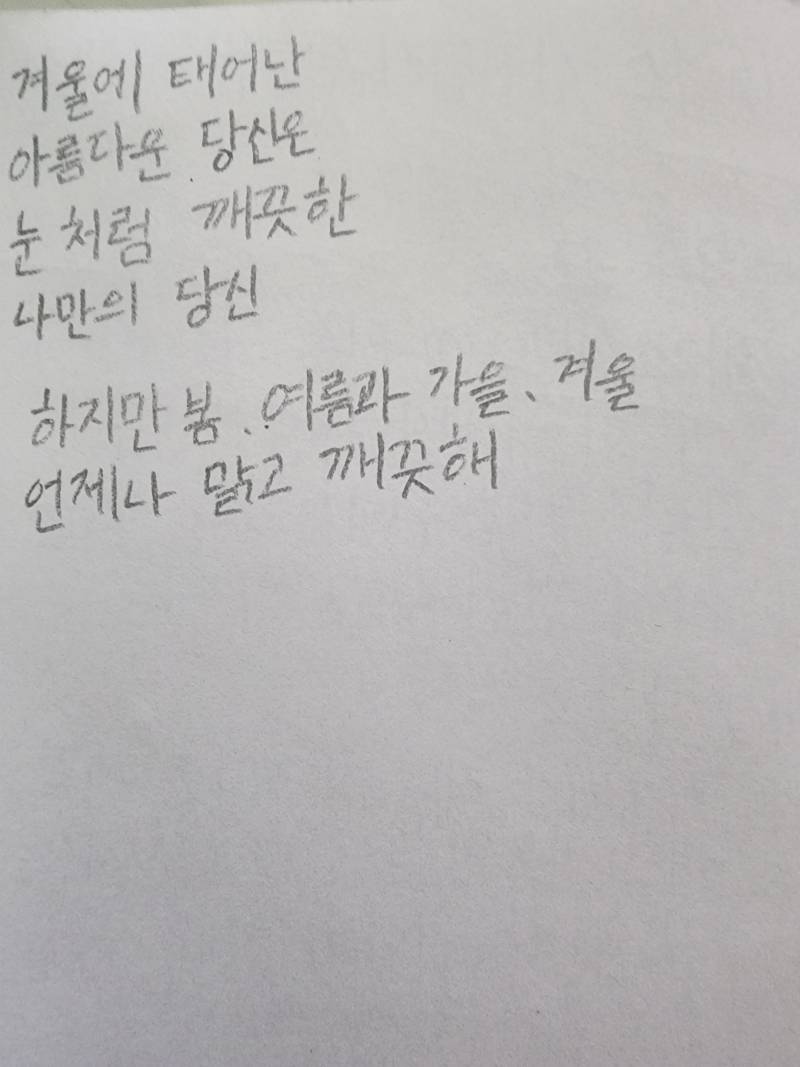 겨울에 태어난
아름다운 당신은
눈처럼 깨끗한
나만의 당신
하지만 봄, 여름과 가을, 겨울
언제나 맑고 깨끗해